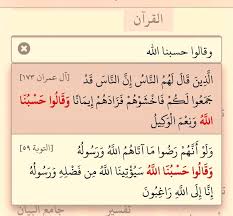 القرآن
وقالوا حسبنا الله
الَّذِينَ قَالَ لَهُمُ النَّاسُ إِنَّ النَّاسَ قَدْ [آل عمران ١٧٣]
جَمَعُوا لَكُمْ فَاخْشَوْهُمْ فَزَادَهُمْ إِيمَانًا وَقَالُوا حَسْبُنَا
اللَّهُ وَنِعْمَ الْوَكِيلُ
وَلَوْ أَنَّهُمْ رَضُوا مَا آتَاهُمُ اللَّهُ وَرَسُولُهُ [التوبة ٥٩]
وَقَالُوا حَسْبُنَا اللَّهُ سَيُؤْتِينَا اللَّهُ مِن فَضْلِهِ وَرَسُولُهُ
إِنَّا إِلَى اللَّهِ رَاغِبُونَ
تفسير جامع البيان